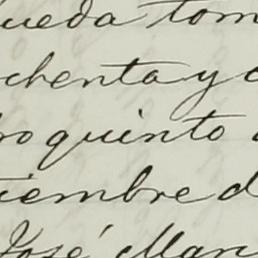 ueda tom
chenta y c
ro quinto
iembre d
José Mar